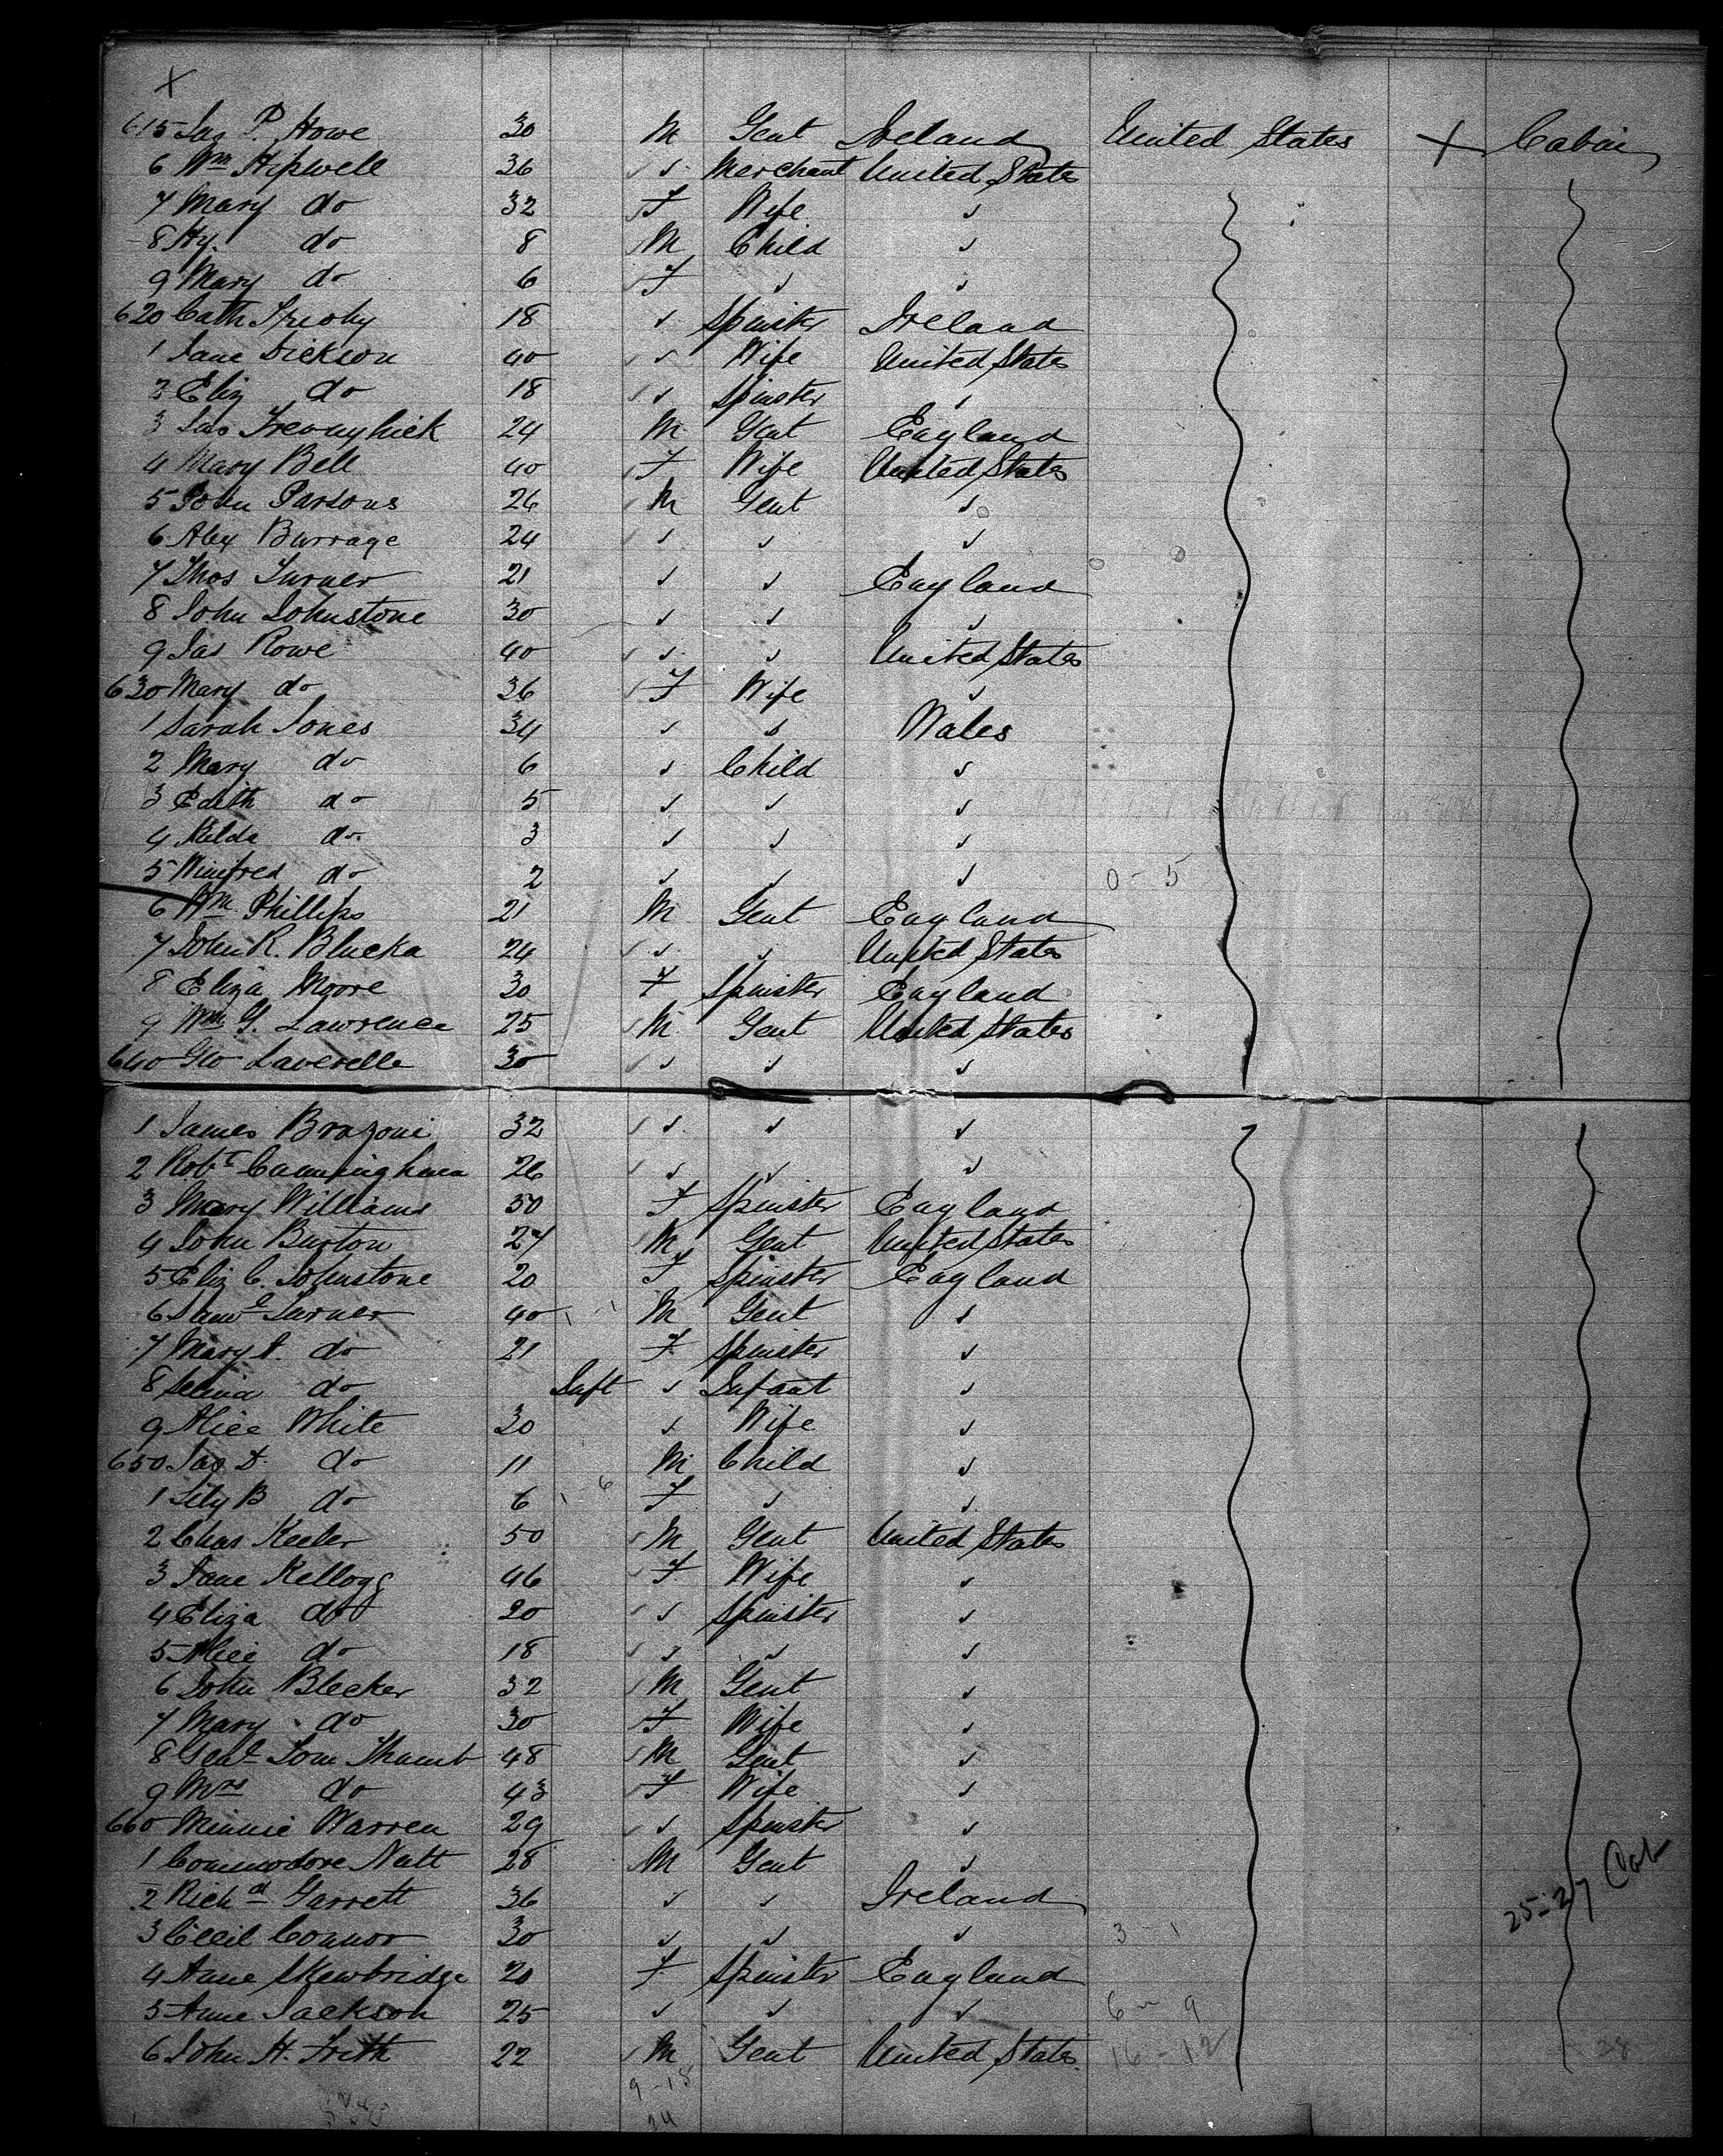 X
615 Jas P. Howe 30 M Gent Ireland United States X Cabin
6 Wm Hipwell 36 ✓ ✓ Merchant United States
7 Mary do 32 ✓ F Wife ✓
8 Hy. do 8 ✓ M Child ✓
9 Mary do 6 ✓ F ✓ ✓
620 Cath 18 ✓ Spinster Ireland
1 Jane Dickson 40 ✓ ✓ Wife United States
2 Eliz do 18 ✓ ✓ Spinster ✓
3 Jas 24 M Gent England
4 Mary Bell 40 ✓ F Wife United States
5 John Parsons 26 ✓ M Gent ✓
6 Alex Burrage 24 ✓ ✓ ✓
7 Thos Turner 21 ✓ ✓ England
8 John Johnstone 30 ✓ ✓ ✓
9 Jas Rowe 40 ✓ ✓ ✓ United States
630 Mary do 36 ✓ F Wife ✓
1 Sarah Jones 34 ✓ ✓ Wales
2 Mary do 6 ✓ Child ✓
3 Edith do 5 ✓ ✓ ✓
4 do 3 ✓ ✓ ✓
5 Winifred do 2 ✓ ✓ ✓ 0 - 5
6 Wm Phillips 21 M Gent England
7 John R. Blucka 24 ✓ ✓ ✓ United States
8 Eliza Moore 30 F Spinster England
9 Wm G. Lawrence 25 ✓ M Gent United States
640 Geo Laverelle 30 ✓ ✓ ✓ ✓
1 James Brazoni 32 ✓ ✓ ✓ ✓
2 Robt Cunningham 26 ✓ ✓ ✓ ✓
3 Mary Williams 30 F Spinster England
4 John Burton 27 ✓ M Gent United States
5 Eliz C. Johnstone 20 F Spinster England
6 Saml Turner 40 M Gent ✓
7 Mary A. do 21 F Spinster ✓
8 Selina do Inft ✓ Infant ✓
9 Alice White 30 ✓ Wife ✓
650 Jas D. do 11 M Child ✓
1 Lily B do 6 F ✓ ✓
2 Chas Keeler 50 ✓ M Gent United States
3 Jane Kellogg 46 ✓ F Wife ✓
4 Eliza do 20 ✓ ✓ Spinster ✓
5 Alice do 18 ✓ ✓ ✓ ✓
6 John Blecker 32 ✓ M Gent ✓
7 Mary do 30 ✓ F Wife ✓
8 Genl Tom Thumb 48 ✓ M Gent ✓
9 Mrs do 43 ✓ F Wife ✓
660 Minnie Warren 29 ✓ ✓ Spinster ✓
1 Commodore Nutt 28 ✓ M Gent ✓
2 Richd Garrett 36 ✓ ✓ Ireland 25-27
3 Cecil Connor 30 ✓ ✓ ✓ 3 - 1
4 Anne Skewbridge 20 F Spinster England
5 Anne Jackson 25 ✓ ✓ ✓ 6 - 9
6 John H. Frith 22 ✓ M Gent United States 16 - 12 28
9 - 18
24